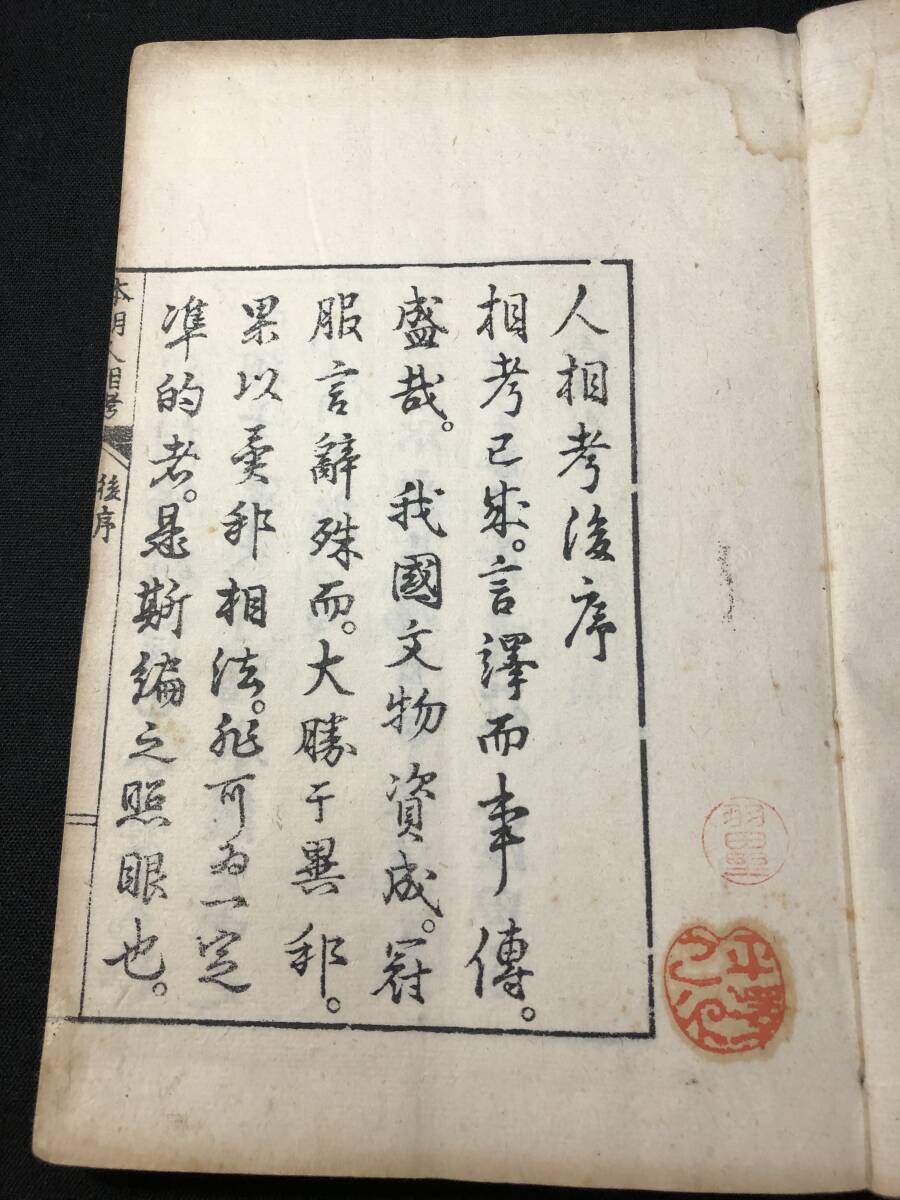 人相考後序
相考已成。言譯而事傳。
盛哉。我國文物資成。冠
服言辭殊而。大勝于異邦。
果以異邦相法。非可為一定
準的者。是斯編之照眼也。
本朝人相考
後序